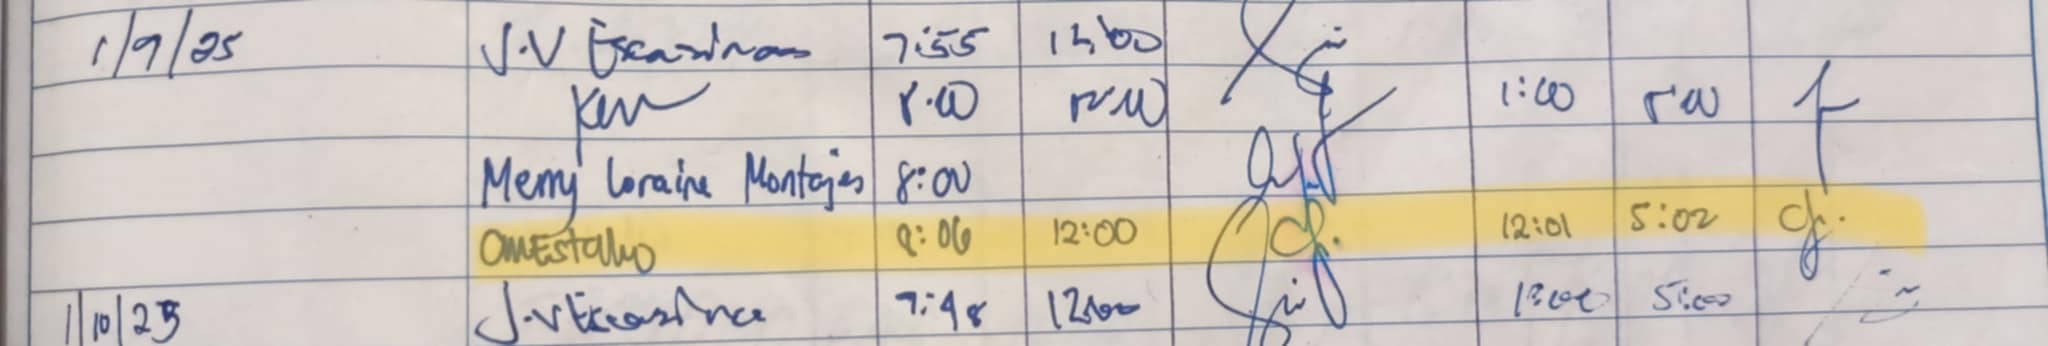 1/9/25 J.V Escasinas 7:55 12:00
Ken 8:00 12:00 1:00 5:00
Merry Loraine Montajes 8:00
OMEstallo 8:06 12:00 12:01 5:02
1/10/25 J.V Escasinas 7:48 12:00 1:00 5:00